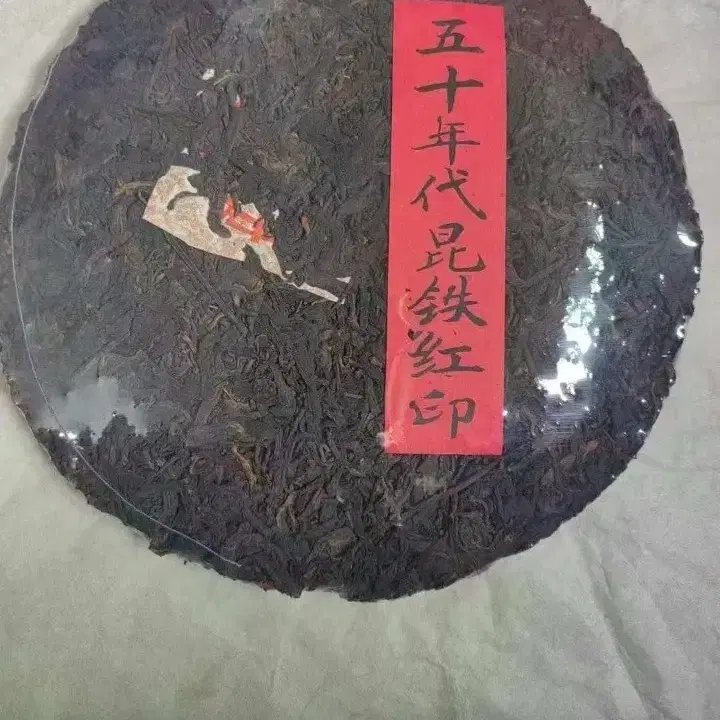 五十年代昆铁红印